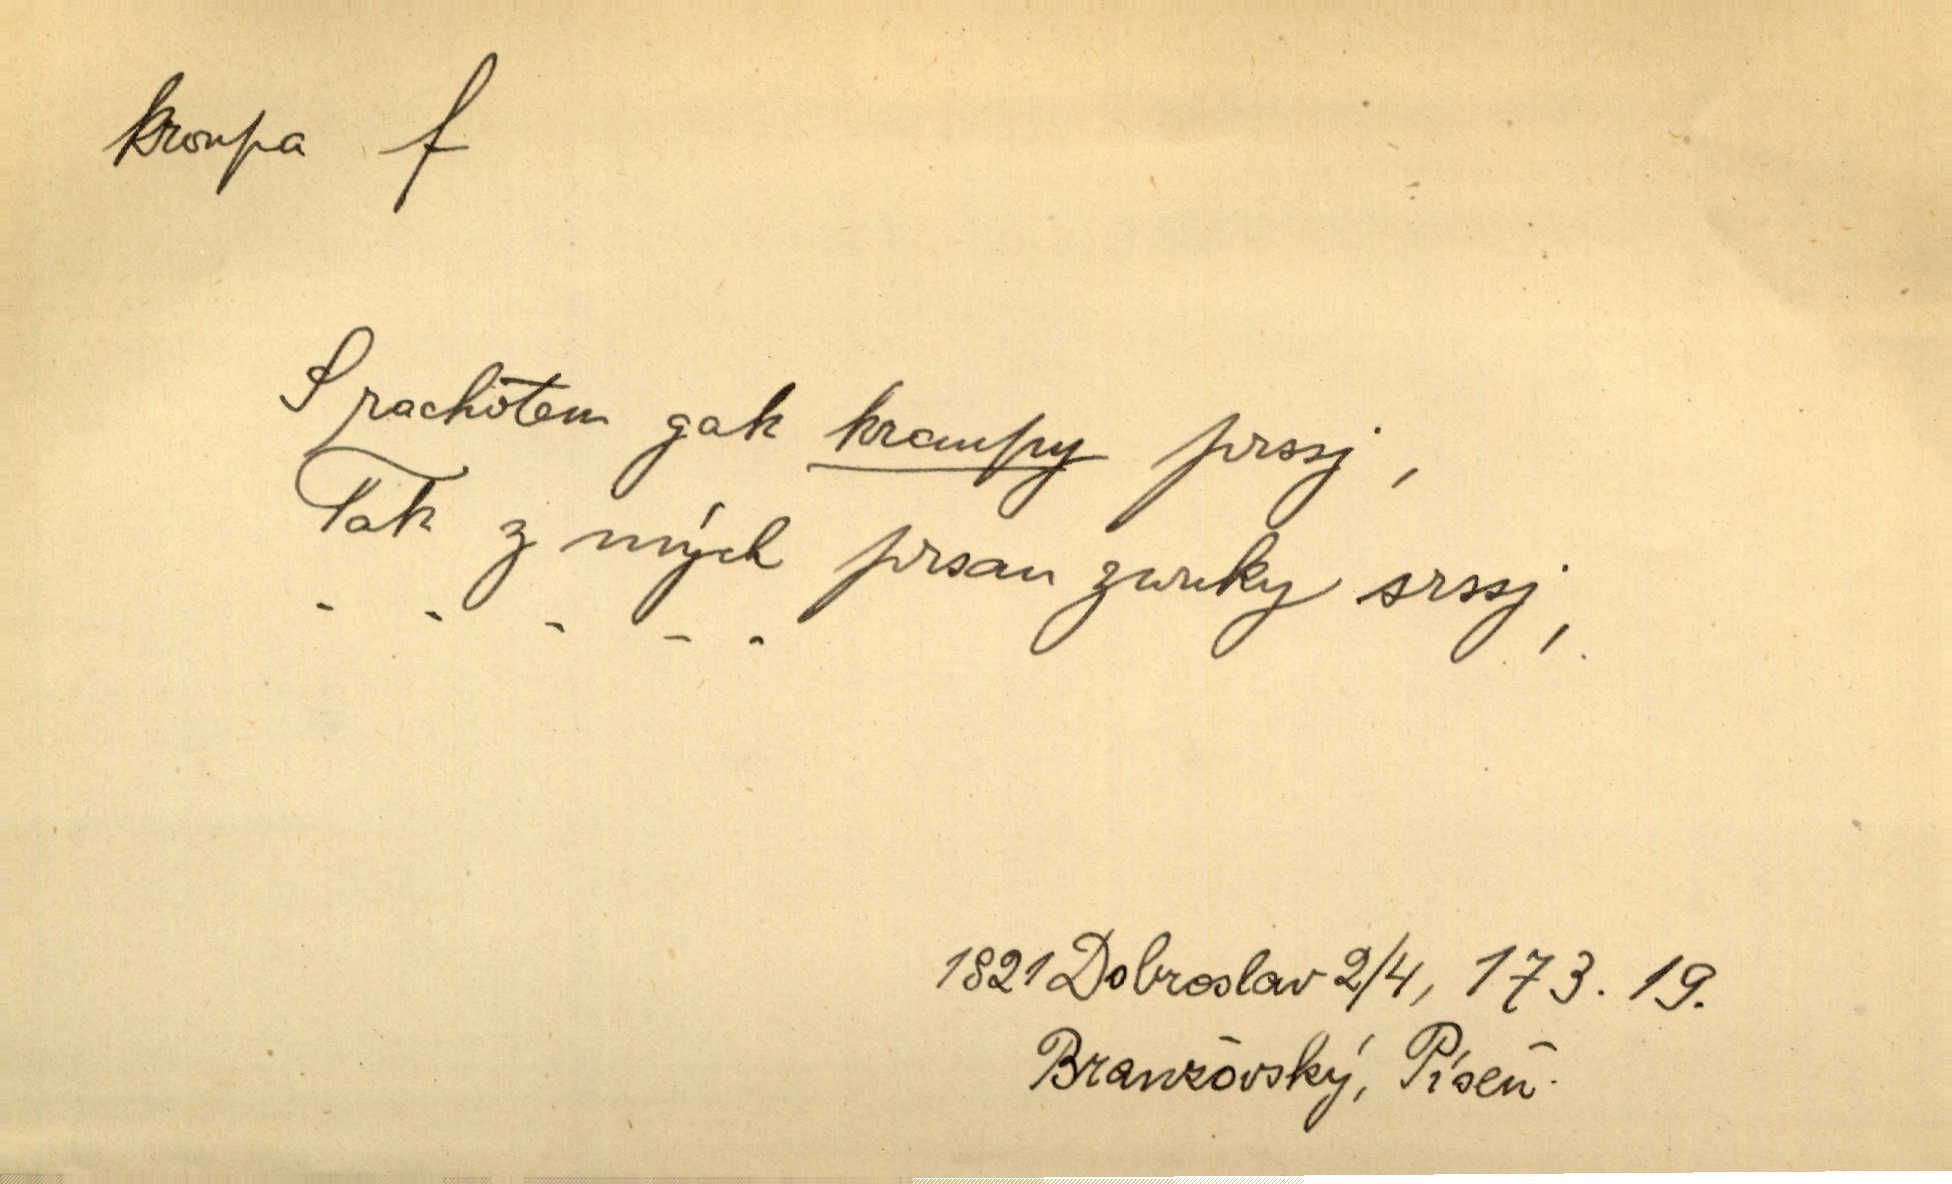 kroupa f
S rachotem gak kraupy prssj,
Tak z mých prsau zwuky srssj,
- - - - -
1821 Dobroslav 2/4, 173. 19.
Branžovský, Píseň.